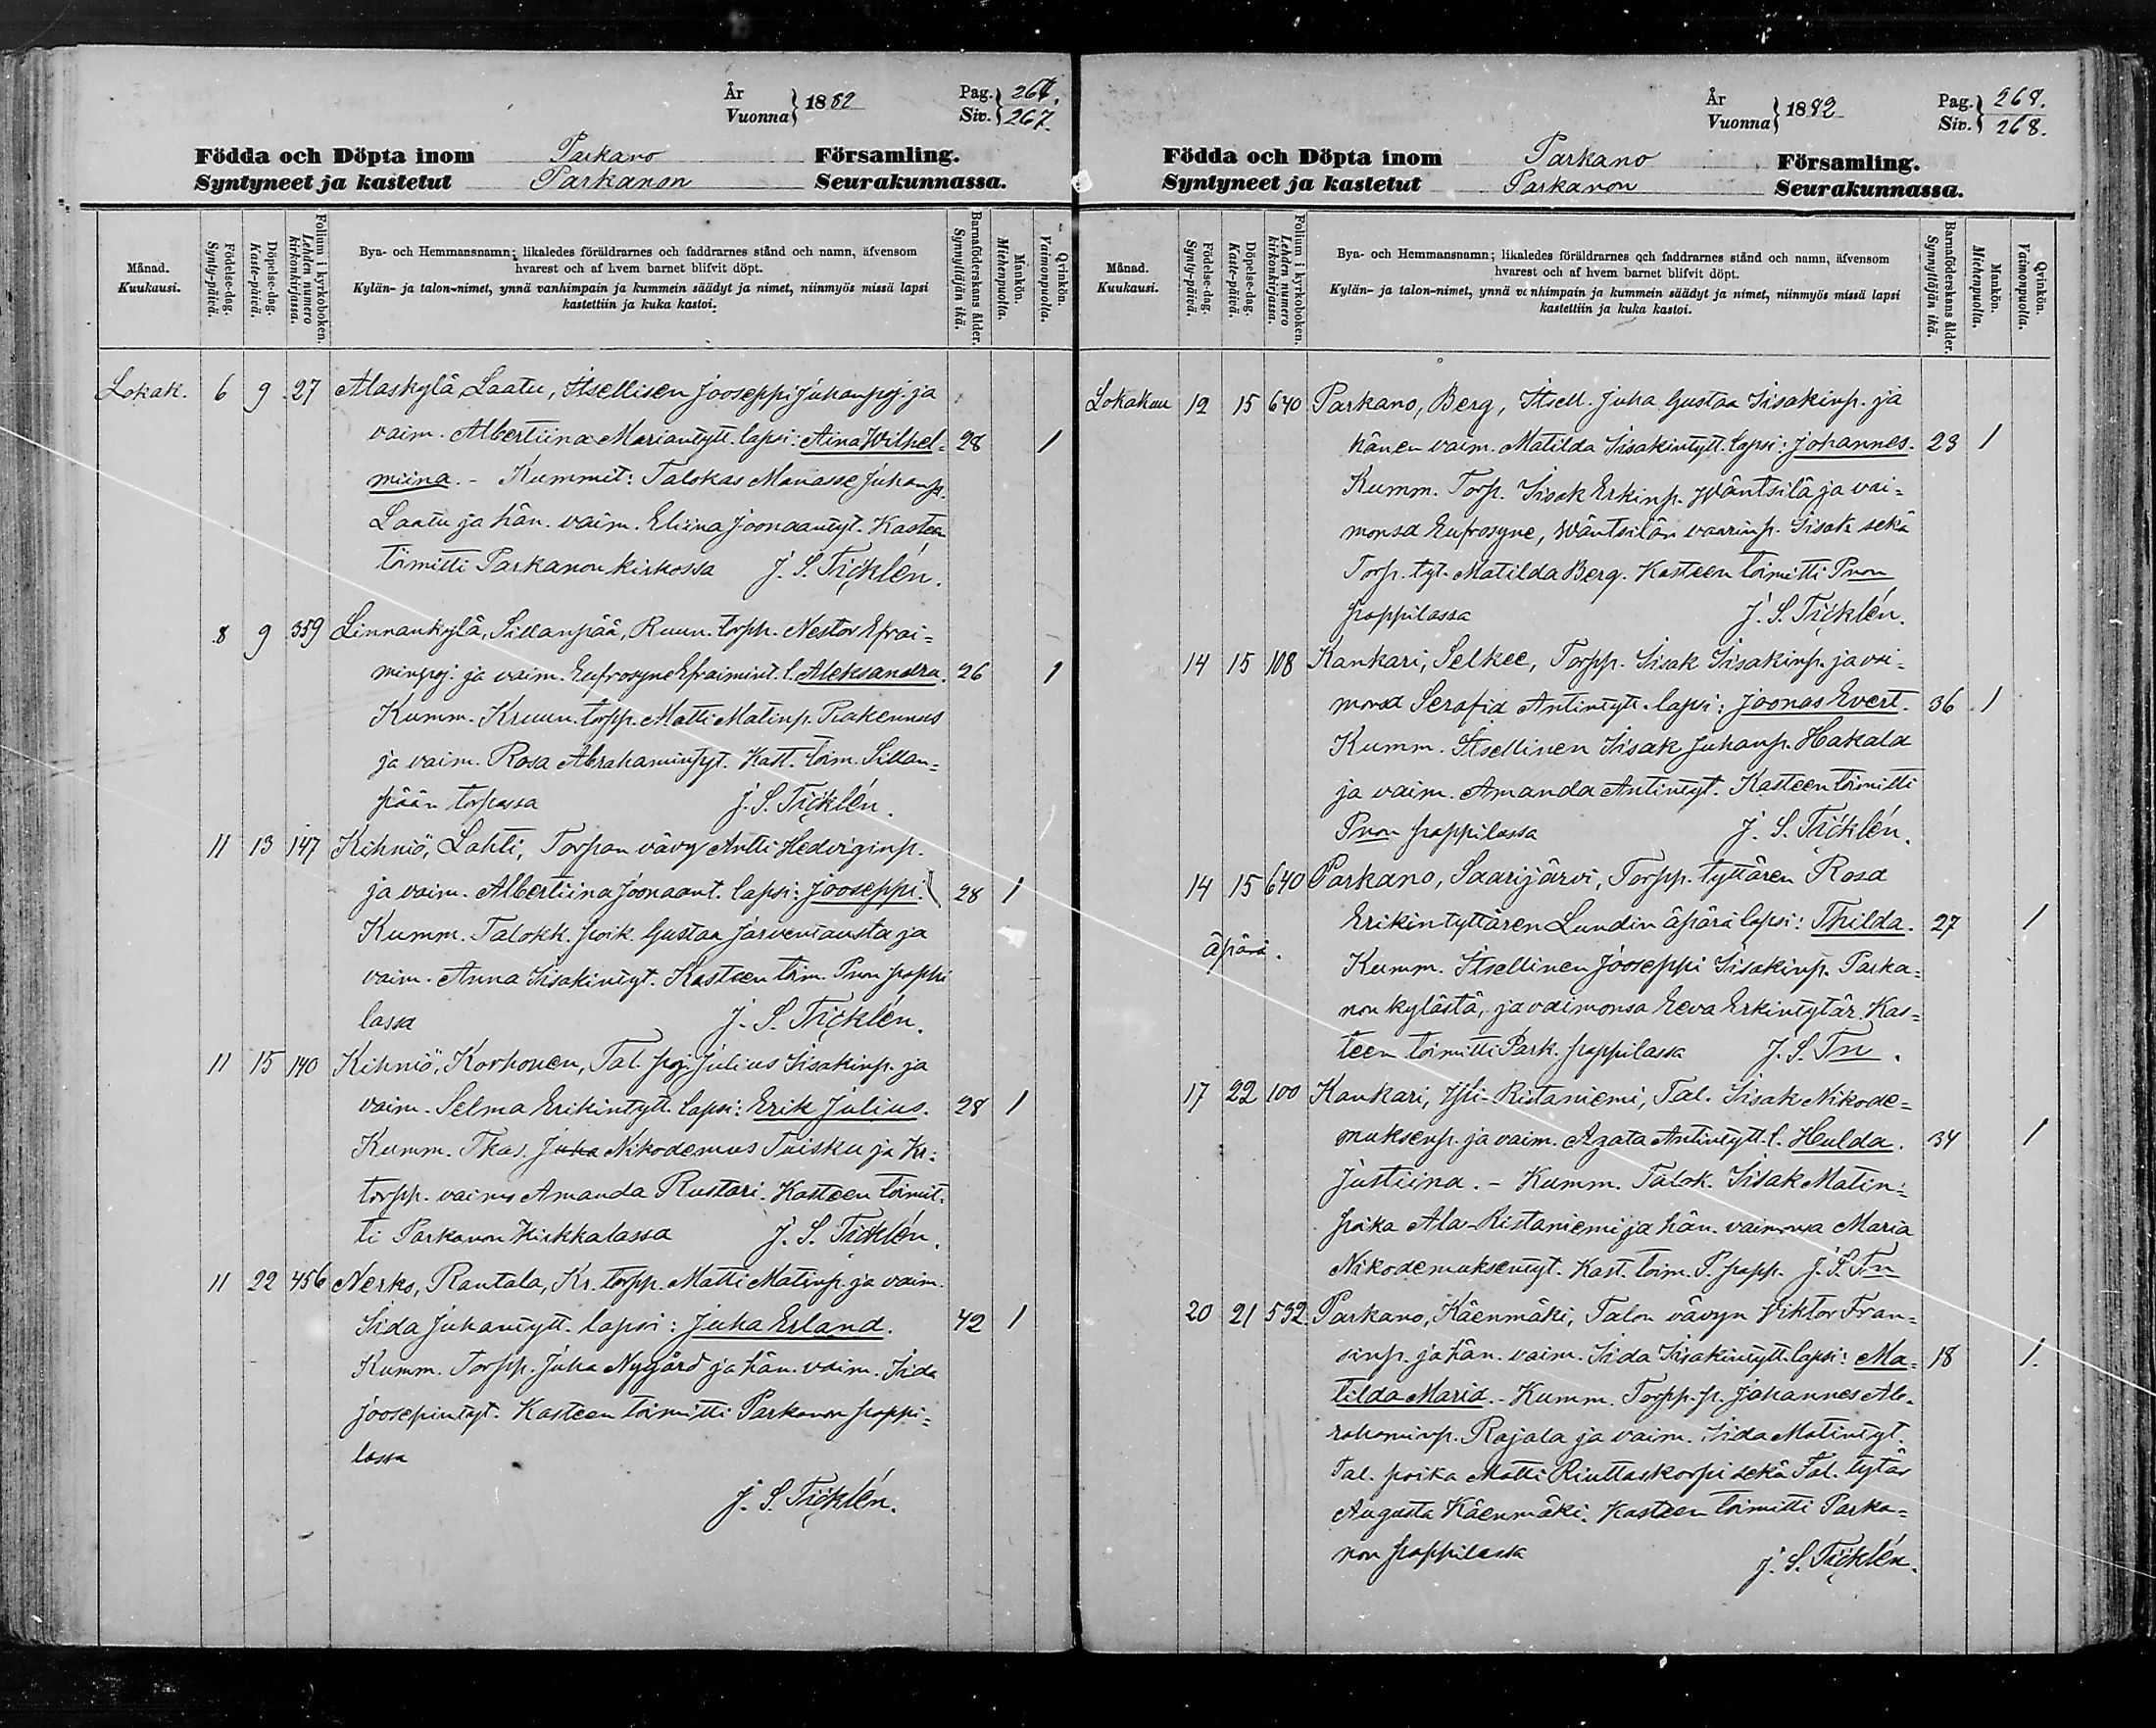 År
Vuonna} 1882
Pag.
Siv.} 267.
Födda och Döpta inom Parkano Församling.
Syntyneet ja kastetut Parkanon Seurakunnassa.
Månad.
Kuukausi.
Födelse-dag.
Synty-päivä.
Döpelse-dag.
Kaste-päivä.
Folium i kyrkoboken.
Lehden numero
kirkonkirjassa.
Bya- och Hemmansnamn; likaledes föräldrarnes och faddrarnes stånd och namn, äfvensom
hvarest och af hvem barnet blifvit döpt.
Kylän- ja talon-nimet, ynnä vanhimpain ja kummein säädyt ja nimet, niinmyös missä lapsi
kastettiin ja kuka kastoi.
Barnaföderskans ålder.
Synnyttäjän ikä.
Mankön.
Miehenpuolia.
Qvinkön.
Vaimonpuolia.
Lokak. 6 9 27 Alaskylä Laatu, Itsellisen Jooseppi Juhanpoj. ja
vaim. Albertiina Mariantytt. lapsi: Aina Wilhel= 28 1
miina. - Kummit: Talokas Manasse Juhanp.
Laatu ja hän. vaim. Eliina Joonaantyt. Kasteen
toimitti Parkanon kirkossa J. S. Ticklén.
8 9 359 Linnankylä, Sillanpää, Ruun. torpp. Nestor Efrai=
minpoj. ja vaim. Eufrosyne Efraimint. l. Aleksandra. 26 1
Kumm. Kruun. torpp. Matti Matinp. Rakennus
ja vaim. Rosa Abrahamintyt. Kast. toim. Sillan=
pään torpassa J. S. Ticklén.
11 13 147 Kihniö, Lahti, Torpan vävy Antti Hedviginp.
ja vaim. Albertiina Joonaant. lapsi: Jooseppi. 28 1
Kumm. Talokk. poik. Gustaa Järventausta ja
vaim. Anna Iisakintyt. Kasteen toim. Pnon pappi
lassa J. S. Ticklén.
11 15 140 Kihniö, Korhonen, Tal. poj. Julius Iisakinp. ja
vaim. Selma Erikintytt. lapsi: Erik Julius. 28 1
Kumm. Tkas. Juha Nikodemus Tuisku ja Kr.
torpp. vaimo Amanda Rustari. Kasteen toimit=
ti Parkanon Kirkkalassa J. S. Ticklén.
11 22 456 Nerko, Rantala, Kr. torpp. Matti Matinp. ja vaim.
Iida Juhantytt. lapsi: Juha Erland. 42 1
Kumm. Torpp. Juha Nygård ja hän. vaim. Iida
Joosepintyt. Kasteen toimitti Parkanon pappi=
lassa
J. S. Ticklén.
År
Vuonna} 1882
Pag. 268.
Siv.} 268.
Födda och Döpta inom Parkano Församling.
Syntyneet ja kastetut Parkanon Seurakunnassa.
Månad.
Kuukausi.
Födelse-dag.
Synty-päivä.
Döpelse-dag.
Kaste-päivä.
Folium i kyrkoboken.
Lehden numero
kirkonkirjassa.
Bya- och Hemmansnamn; likaledes föräldrarnes och faddrarnes stånd och namn, äfvensom
hvarest och af hvem barnet blifvit döpt.
Kylän- ja talon-nimet, ynnä vanhimpain ja kummein säädyt ja nimet, niinmyös missä lapsi
kastettiin ja kuka kastoi.
Barnaföderskans ålder.
Synnyttäjän ikä.
Mankön.
Miehenpuolia.
Qvinkön.
Vaimonpuolia.
Lokakuu 12 15 640 Parkano, Berg, Itsell. Juha Gustaa Iisakinp. ja
hänen vaim. Matilda Iisakintytt. lapsi: Johannes. 23 1
Kumm. Torp. Iisak Erkinp. Wäntsilä ja vai=
monsa Eufrosyne, Wäntsilän vaarinp. Iisak sekä
Torp. tyt. Matilda Berg. Kasteen toimitti Pnon
pappilassa J. S. Ticklén.
14 15 108 Kankari, Selkee, Torpp. Iisak Iisakinp. ja vai=
monsa Serafia Antintytt. lapsi: Joonas Evert. 36 1
Kumm. Itsellinen Iisak Juhanp. Hakala
ja vaim. Amanda Antintyt. Kasteen toimitti
Pnon pappilassa J. S. Ticklén.
14 15 640 Parkano, Saarijärvi, Torpp. tyttären Rosa
Erikintyttären Lundin äpärä lapsi: Thilda. 27 1
äpärä.
Kumm. Itsellinen Jooseppi Iisakinp. Parka=
non kylästä, ja vaimonsa Eeva Erkintytär. Kas=
teen toimitti Park. pappilassa J. S. Tn.
17 22 100 Kankari, Yli-Ristaniemi, Tal. Iisak Nikode=
muksenp. ja vaim. Agata Antintytt. l. Hulda. 34 1
Justiina. - Kumm. Talok. Iisak Matin=
poika Ala-Ristaniemi ja hän. vaimonsa Maria
Nikodemuksentyt. Kast. toim. P. papp. J. S. Tn
20 21 532 Parkano, Käenmäki, Talon vävyn Viktor Fran=
sinp. ja hän. vaim. Iida Iisakintytt. lapsi: Ma= 18 1.
tilda Maria. - Kumm. Torpp. p. Johannes Ab=
rahaminp. Rajala ja vaim. Iida Matintyt.
Tal. poika Matti Riuttaskorpi sekä Tal. tytär
Augusta Käenmäki. Kasteen toimitti Parka=
non pappilassa J. S. Ticklén.